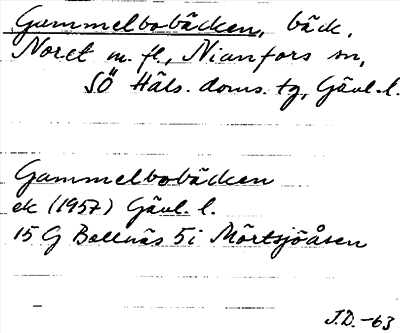 Gammelbobäcken, bäck,
Noret m. fl., Nianfors sn,
SÖ Häls. doms. tg, Gävl. l.
Gammelbobäcken
ek (1957) Gävl. l.
15 G Bollnäs 5i Mörtsjöåsen
J.D. -63